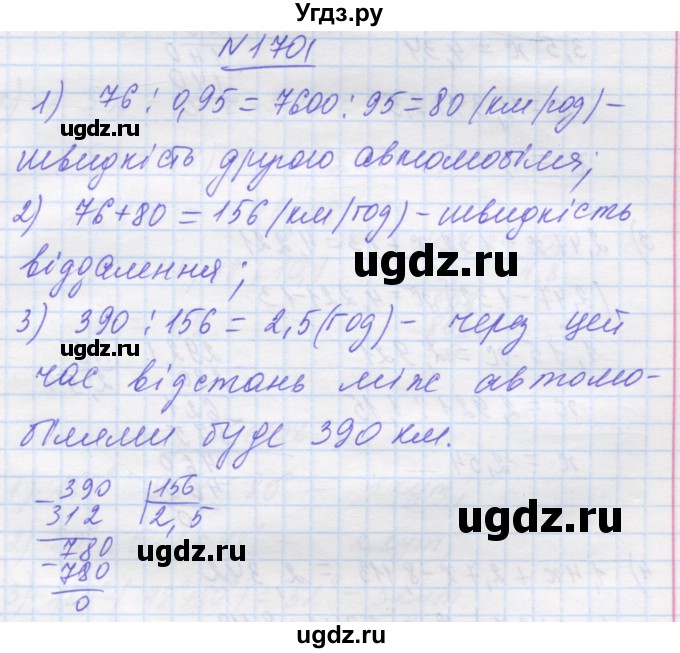 Угдз.ру
N 1701
1) 76 : 0,95 = 7600 : 95 = 80 (км/год) –
швидкість другого автомобіля;
2) 76 + 80 = 156 (км/год) – швидкість
віддалення;
3) 390 : 156 = 2,5 (год) – через цей
час відстань між автомо-
білями буде 390 км.
390 156
312 2,5
780
780
0
ugdz.ru
ugdz.ru
ugdz.ru
ugdz.ru
ugdz.ru
ugdz.ru
ugdz.ru
ugdz.ru